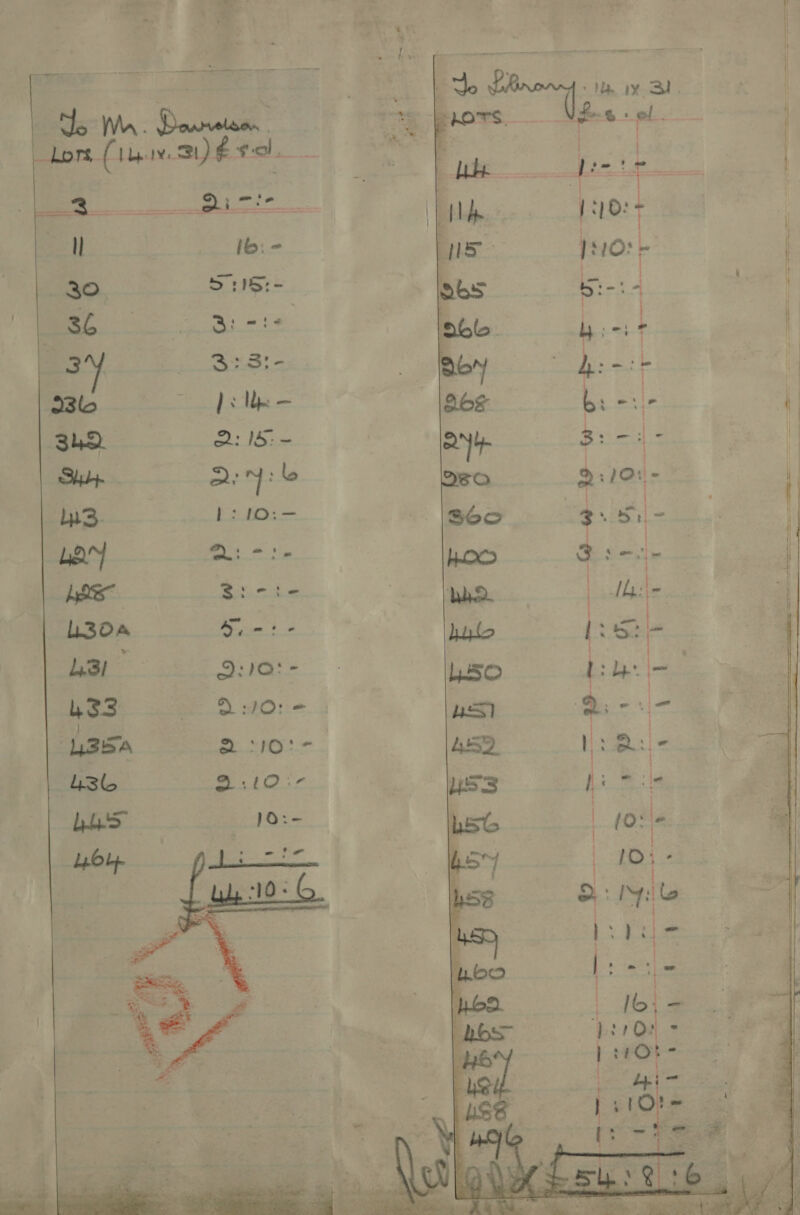 To Mr. Davidson.
Lots (14. IV. 31) £ s d.
3 2:-:-
11 16:-
30 5:15:-
36 3:-:-
37 3:3:-
236 1:14:-
342 2:15:-
344 2:7:6
413 1:10:-
427 2:-:-
428 3:-:-
430A 5:-:-
431 2:10:-
433 2:10:-
435A 2:10:-
436 2:10:-
445 10:-
464 1:-:-
£44:10:6
To Library. 14. IV. 31.
LOTS. £. s. d.
44 1:-:-
114 1:10:-
115 1:10:-
265 5:-:-
266 4:-:-
267 4:-:-
268 6:-:-
274 3:-:-
280 2:10:-
360 3:5:-
400 3:-:-
442 14:-
446 1:5:-
450 1:4:-
451 2:-:-
452 1:2:-
453 1:-:-
456 10:-
457 10:-
458 2:17:6
459 1:1:-
460 1:-:-
462 16:-
465 1:10:-
467 1:10:-
484 4:-
488 1:10:-
496 1:-:-
£54:8:6